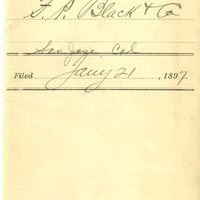 F. P. Black & Co
San Jose, Cal
Filed Jany 21, 1897.